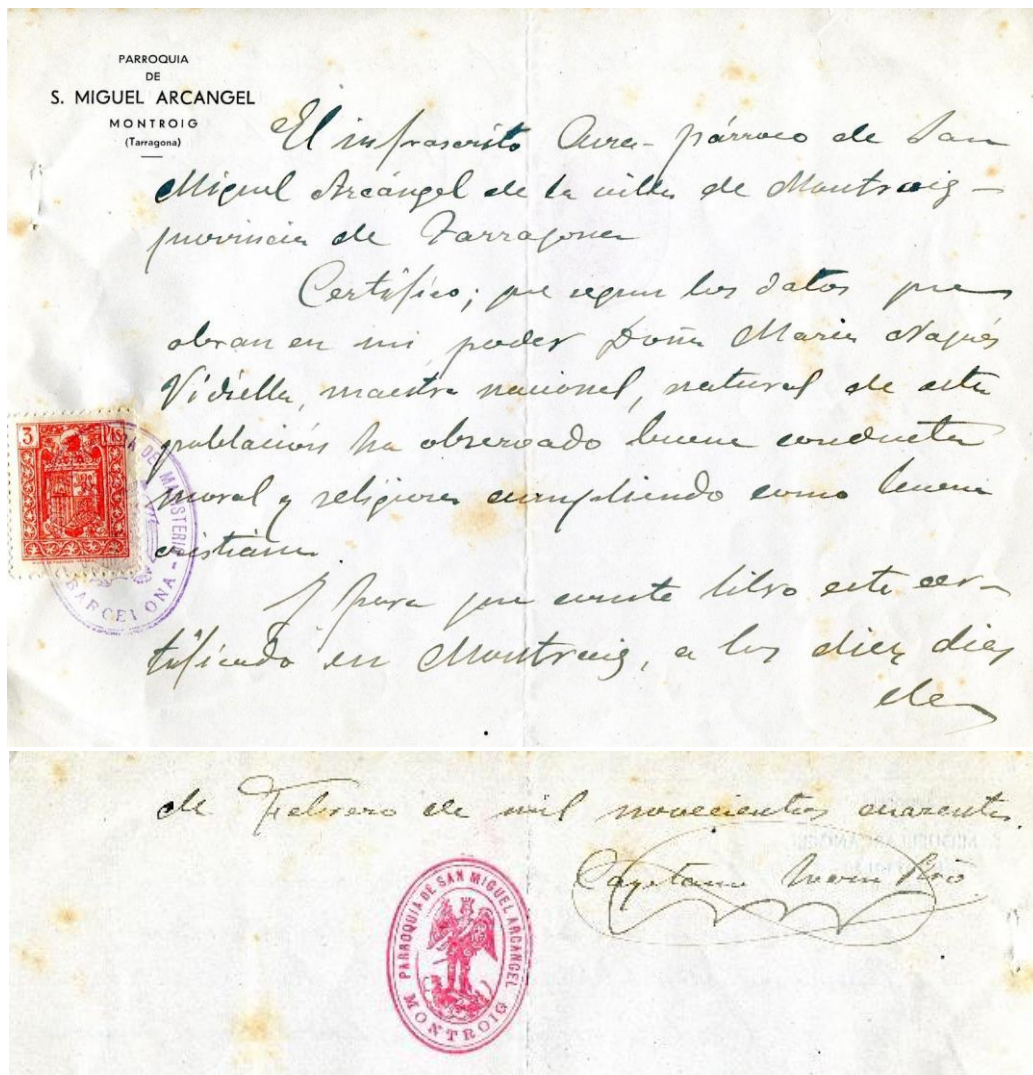 PARROQUIA
DE
S. MIGUEL ARCANGEL
MONTROIG
(Tarragona)
El infrascrito Cura-párroco de San
Miguel Arcángel de la villa de Montroig -
provincia de Tarragona
Certifico; que segun los datos que
obran en mi poder Doña Maria
Vidiella, maestra nacional, natural de esta
población ha observado buena conducta
moral y religiosa cumpliendo como buena
cristiana.
Y para que conste libro este cer-
tificado en Montroig, a los diez dias
de
3 Pts
MAGISTERI
BARCELONA -
de Febrero de mil novecientos cuarenta.
Cayetano
PARROQUIA DE SAN MIGUEL ARCANGEL
MONTROIG